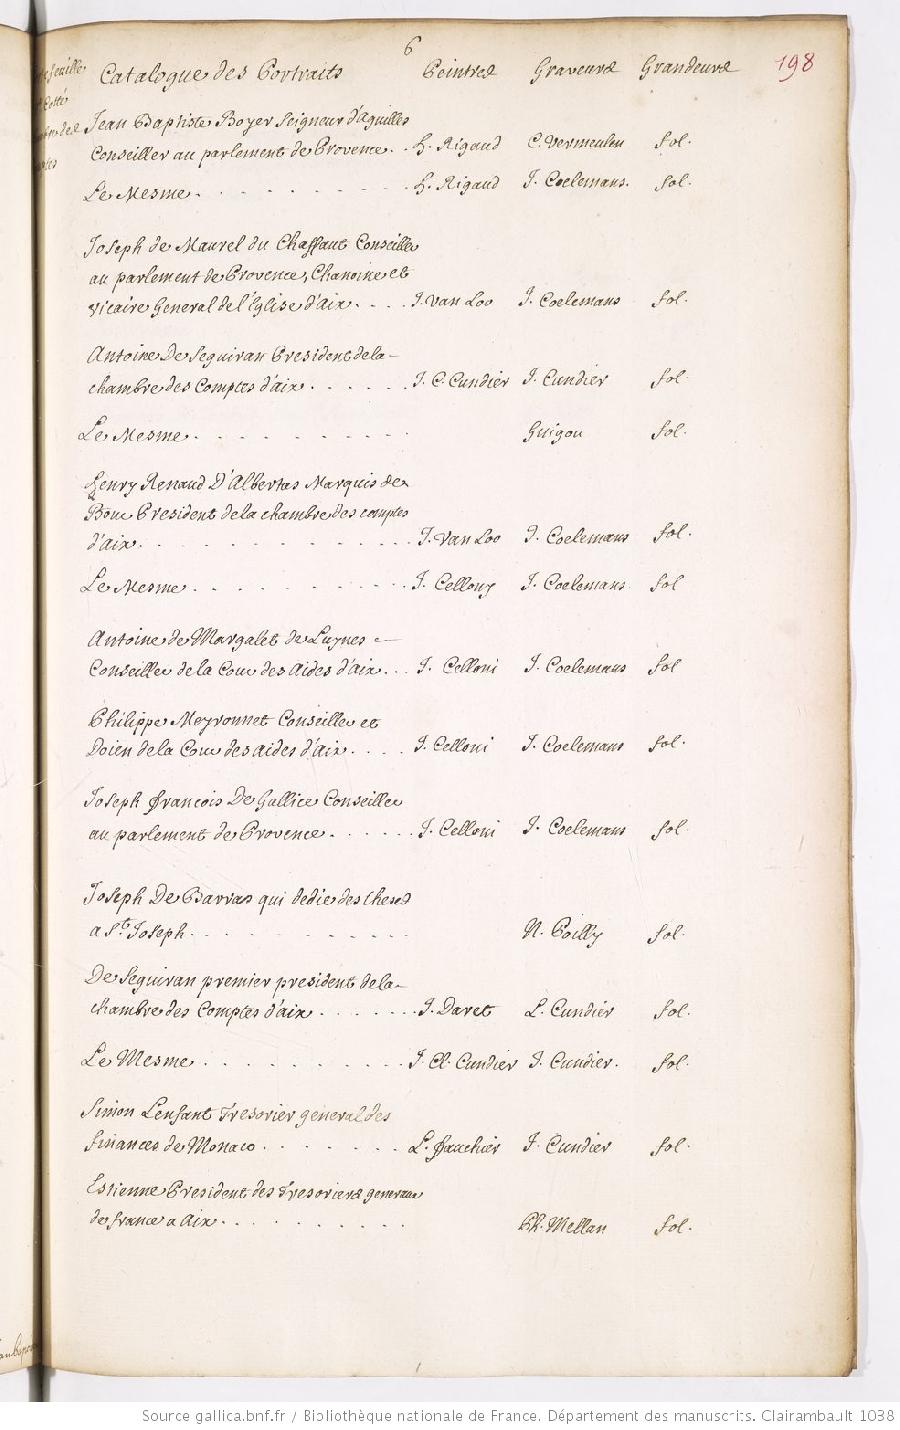 6
Catalogue des Portraits Peintres Graveurs Grandeurs 198
Jean Baptiste Boyer Seigneur d'aguilles
Conseiller au parlement de Provence . . H. Rigaud C. Vermeulen fol.
Le Mesme . . . . . . . . H. Rigaud J. Coelemans. fol.
Joseph de Maurel du Chaffaut Conseiller
au parlement de Provence, Chanoine et
vicaire General de l'Eglise d'Aix . . . . J. Van Loo J. Coelemans fol.
Antoine De Seguiran President de la
chambre des Comptes d'aix . . . . . . J. C. Cundier J. Cundier fol.
Le Mesme . . . . . . . . Guigou fol.
Henry Renaud D'Albertas Marquis de
Bouc President de la chambre des comptes
d'aix . . . . . . . . . . J. Van Loo J. Coelemans fol.
Le Mesme . . . . . . . . . J. Cellony J. Coelemans fol
Antoine de Margalet de Luynes
Conseiller de la Cour des Aides d'aix . . . J. Celloni J. Coelemans fol
Philippe Meyronnet Conseiller et
Doien de la Cour des aides d'aix . . . . J. Celloni J. Coelemans fol.
Joseph francois De Gallice Conseiller
au parlement de Provence . . . . . . J. Celloni J. Coelemans fol.
Joseph De Barras qui dedie des theses
a St. Joseph . . . . . . . . N. Poilly fol.
De Seguiran premier president de la
chambre des Comptes d'aix . . . . . . . J. Daret L. Cundier fol.
Le Mesme . . . . . . . . . J. Cl. Cundier J. Cundier. fol.
Simon Lenfant Tresorier general des
finances de Monaco . . . . . . L. fauchier J. Cundier fol.
Estienne President des Tresoriers generaux
de france a Aix . . . . . . . . Ph. Mellan fol.
Source gallica.bnf.fr / Bibliothèque nationale de France. Département des manuscrits. Clairambault 1038